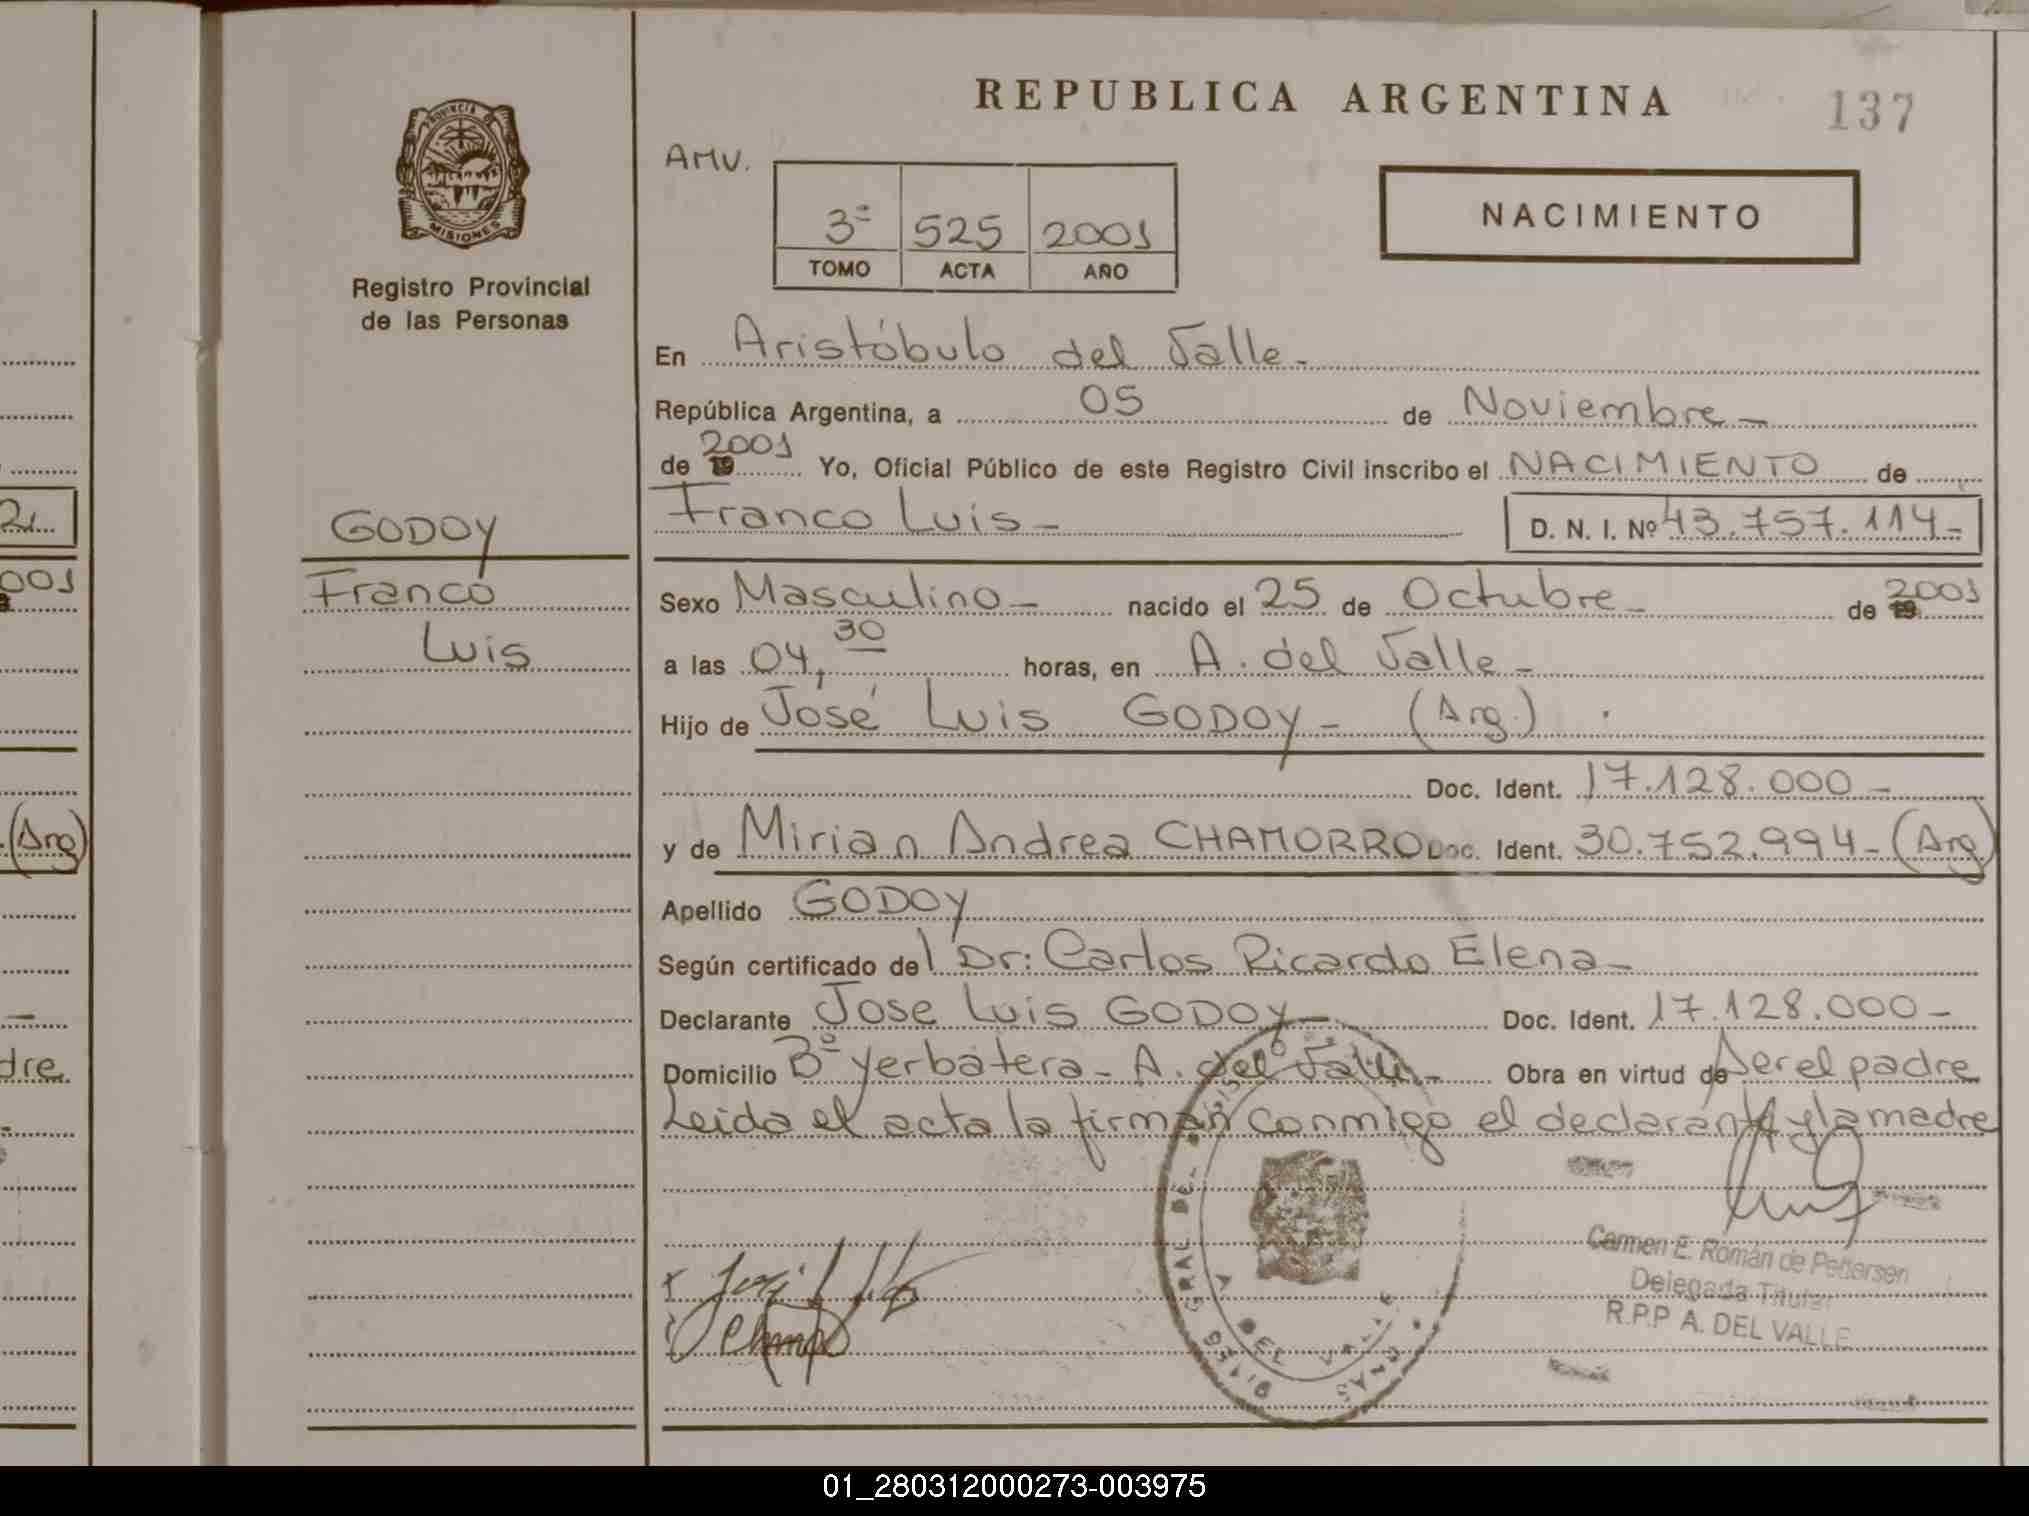 REPUBLICA ARGENTINA
137
PROVINCIA DE
MISIONES
Registro Provincial
de las Personas
AMV.
3º 525 2001
TOMO ACTA AÑO
NACIMIENTO
En Aristóbulo del Valle.
República Argentina, a 05 de Noviembre
de 19 2001 Yo, Oficial Público de este Registro Civil inscribo el NACIMIENTO de
Franco Luis D. N. I. Nº 43.757.114
GODOY
Franco
Luis
Sexo Masculino nacido el 25 de Octubre de 19 2001
a las 04,30 horas, en A. del Valle
Hijo de José Luis GODOY (Arg.)
Doc. Ident. 17.128.000
y de Mirian Andrea CHAMORRO Doc. Ident. 30.752.994 (Arg)
Apellido GODOY
Según certificado del Dr: Carlos Ricardo Elena
Declarante Jose Luis GODOY Doc. Ident. 17.128.000
Domicilio Bº Yerbatera - A. del Valle Obra en virtud de ser el padre
Leida el acta la firman conmigo el declarante y la madre
GRAL DE
A DEL VALLE
Carmen E. Román de Pettersen
Delegada Titular
R.P.P A. DEL VALLE
2.
001
(Arg)
dre
01_280312000273-003975